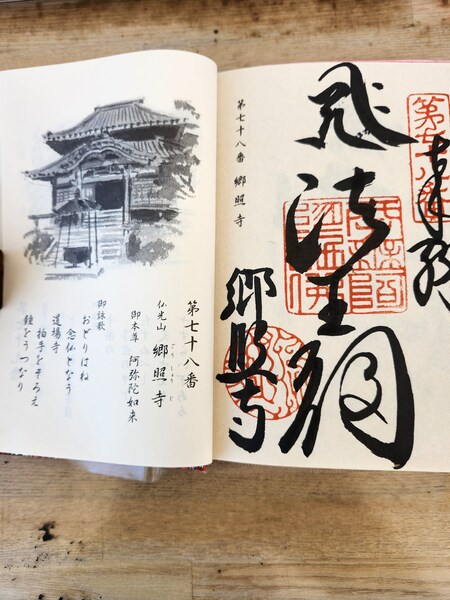 第七十八番
郷照寺
第七十八番 郷照寺
第七十八番
仏光山 郷照寺
ごうしょうじ
御本尊 阿弥陀如来
御詠歌
おどりはね
念仏となう
道場寺
拍手をそろえ
鐘をうつなり